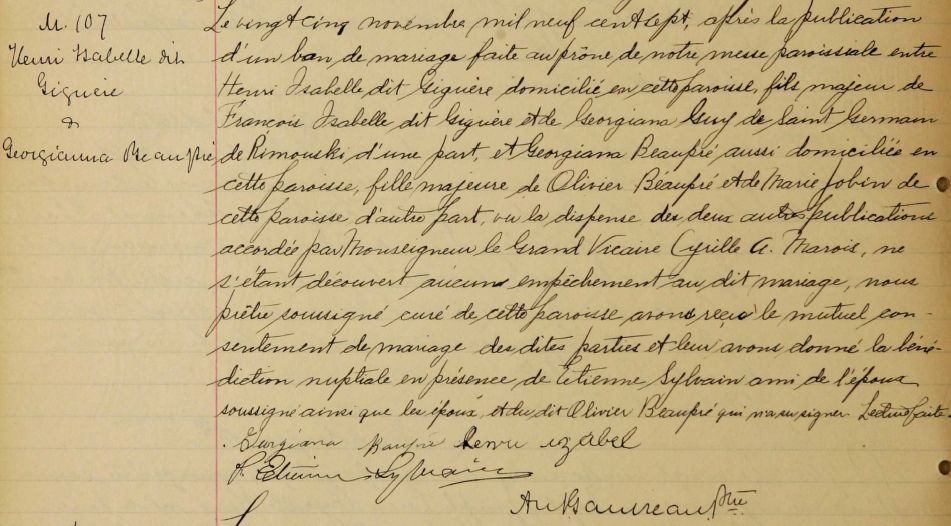 M. 107
Henri Isabelle dit
Giguère
&
Georgianna Beaupré
Le vingt cinq novembre mil neuf cent sept, après la publication
d'un ban de mariage faite au prône de notre messe paroissiale entre
Henri Isabelle dit Giguère domicilié en cette paroisse, fils majeur de
François Isabelle dit Giguère et de Georgiana Guy de Saint Germain
de Rimouski, d'une part, et Georgiana Beaupré aussi domiciliée en
cette paroisse, fille majeure de Olivier Beaupré et de Marie Jobin de
cette paroisse d'autre part, vu la dispense des deux autres publications
accordée par Monseigneur le Grand Vicaire Cyrille A. Marois, ne
s'étant découvert aucun empêchement au dit mariage, nous
prêtre soussigné curé de cette paroisse avons reçu le mutuel con-
sentement de mariage des dites parties et leur avons donné la béné-
diction nuptiale en présence de Etienne Sylvain ami de l'époux
soussigné ainsi que les époux, et du dit Olivier Beaupré qui n'a su signer. Lecture faite.
Georgiana Baupré Henri izabel
P. Etienne Sylvain
ptre